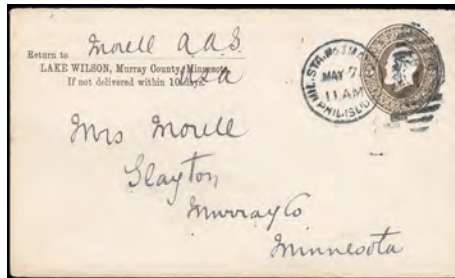 Return to Morell A.A.S.
LAKE WILSON, Murray County, Minnesota
If not delivered within 10 days.
MIL. STA.
MAY 7
11 AM
PHIL. ISL'D
Mrs Morell
Slayton
Murray Co
Minnesota